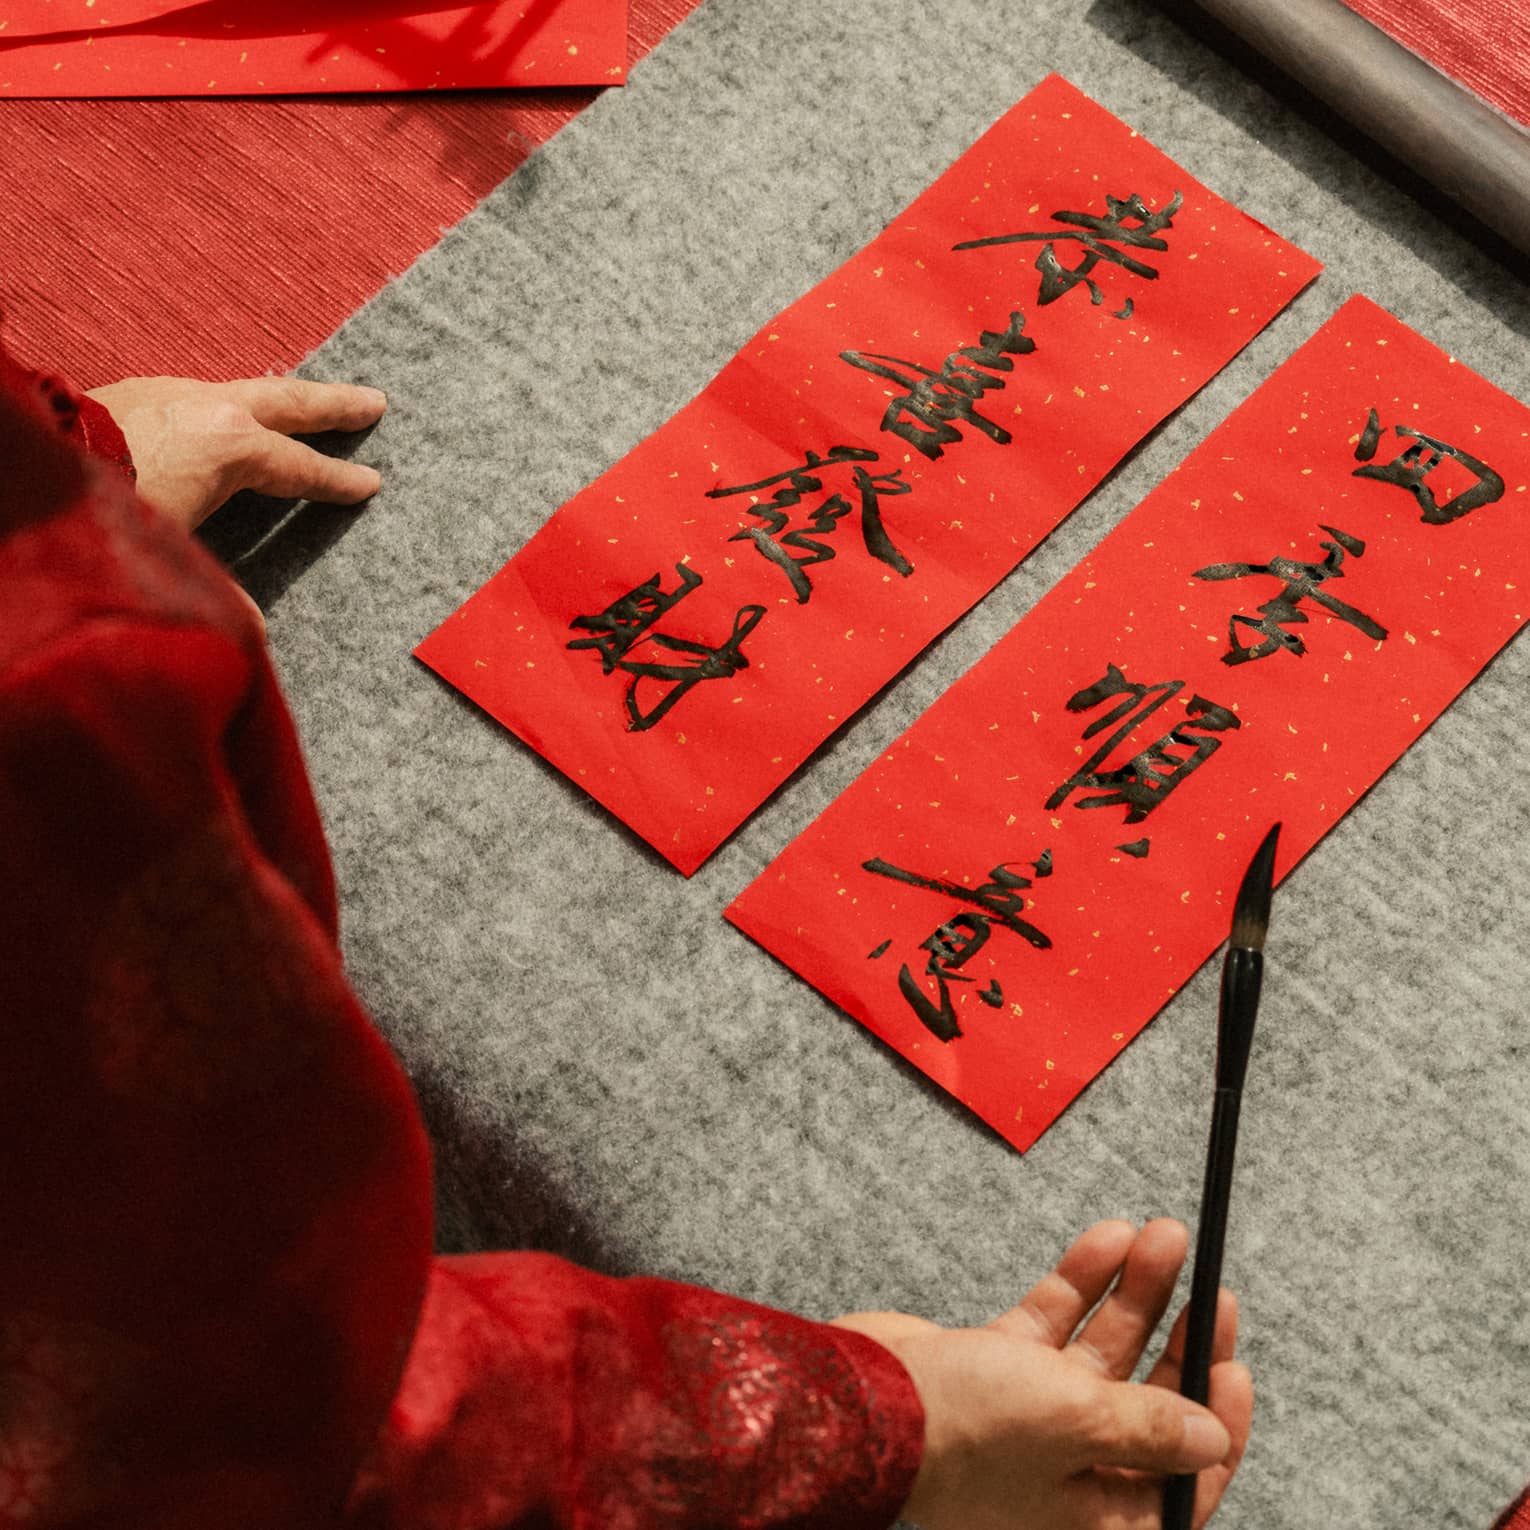 恭喜發財
四季順意